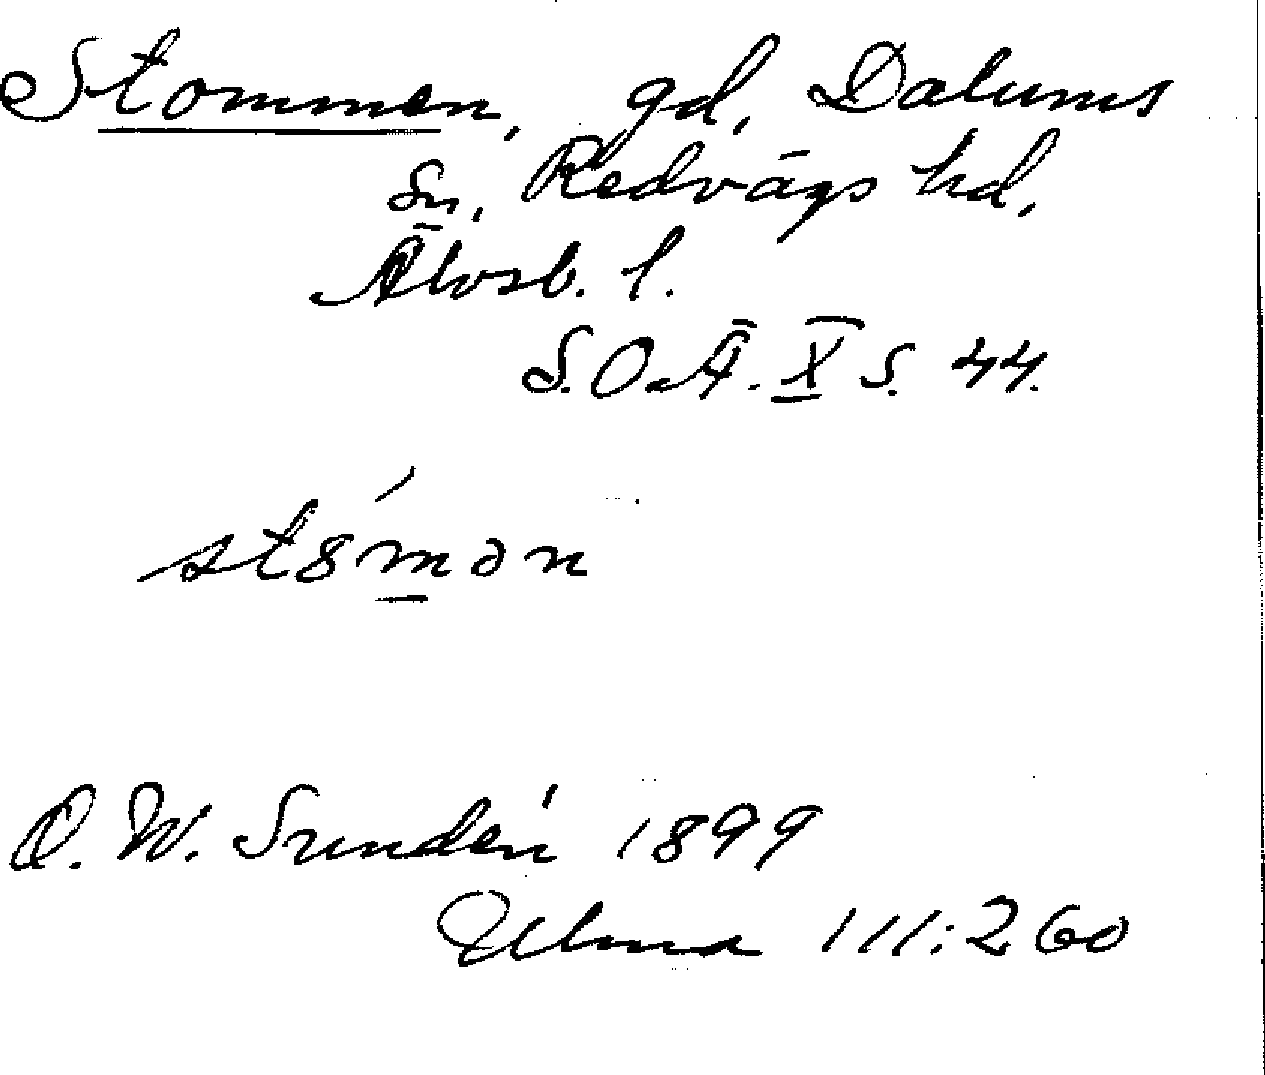 Stommen, gd, Dalums
sn, Redvägs hd,
Älvsb. l.
S.O.Ä. X s. 44.
st8́m̲ən
D. W. Sundén 1899
Ulma 111:260